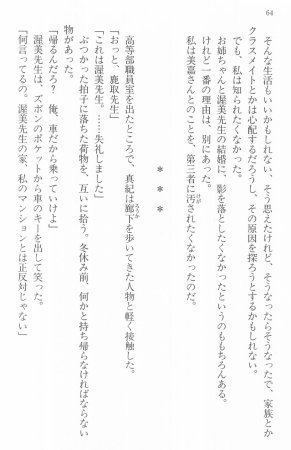 64
そんな生活もいいかもしれない、そう思えたけれど、そうなったらそうなったで、家族とか
クラスメイトとかは心配するだろうし、その原因を探ろうとするかもしれない。
でも、私は知られたくなかった。
お姉ちゃんと渥美先生の結婚に、影を落としたくなかったというのももちろんある。
けれど一番の理由は、別にあった。
私は美嘉さんとのことを、第三者に汚されたくなかったのだ。
* * *
高等部職員室を出たところで、真紀は廊下を歩いてきた人物と軽く接触した。
「おっと、鹿取先生」
「これは渥美先生。……失礼しました」
ぶつかった拍子に落ちた荷物を、互いに拾う。冬休み前、何かと持ち帰らなければならない
物があった。
「帰るんだろ? 俺、車だから乗っていけよ」
渥美先生は、ズボンのポケットから車のキーを出して笑った。
「何言ってるの。渥美先生の家、私のマンションとは正反対じゃない」